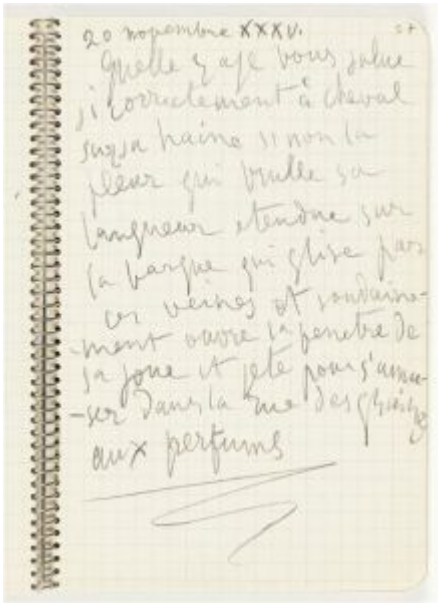 20 novembre XXXV.
37
quelle y aje vous salue
si correctement à cheval
sur sa haine si non la
fleur qui brulle sa
langueur etendue sur
la barque qui glise par
ces veines et soudaine-
-ment ouvre la fenetre de
sa joue et jete pour s'amu-
-ser dans la rue des
aux perfums